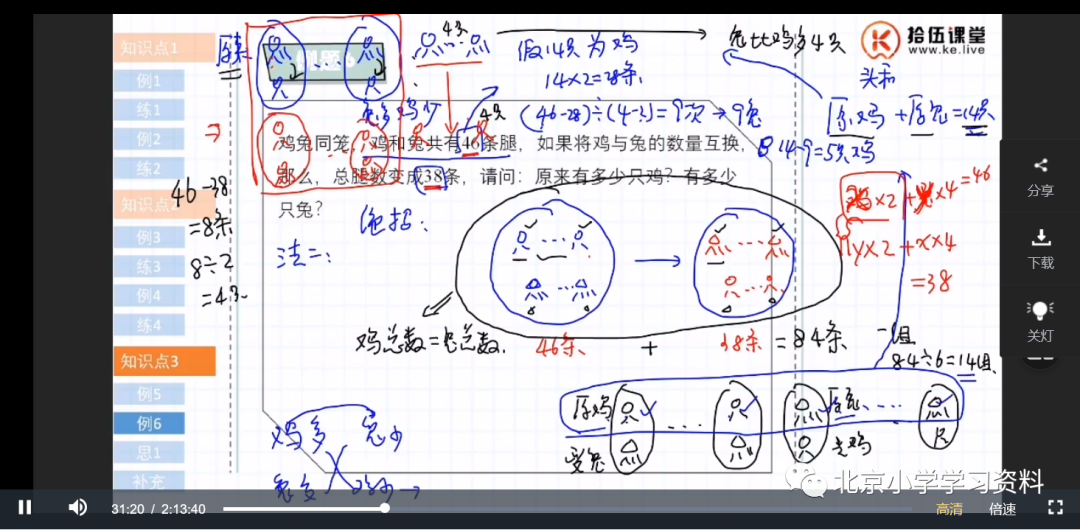 知识点1
例1
练1
例2
练2
知识点2
例3
练3
例4
练4
知识点3
例5
例6
思1
补充
拾伍课堂
www.ke.live
鸡兔同笼，鸡和兔共有46条腿，如果将鸡与兔的数量互换，
那么，总腿数变成38条，请问：原来有多少只鸡？有多少
只兔？
原来
4只
假14只为鸡
14×2=28条
兔比鸡多4只
头和
原鸡+原兔=14只
14-9=5只鸡
46-38
=8条
8÷2
=4只
法二：
鸡×2+兔×4=46
y×2+x×4
=38
鸡总数=兔总数
46条
+
38条
=84条
一组
84÷6=14组
原鸡
变兔
原兔
变鸡
鸡多 兔少
兔多 鸡少
北京小学学习资料
分享
下载
关灯
31:20 / 2:13:40
高清
倍速